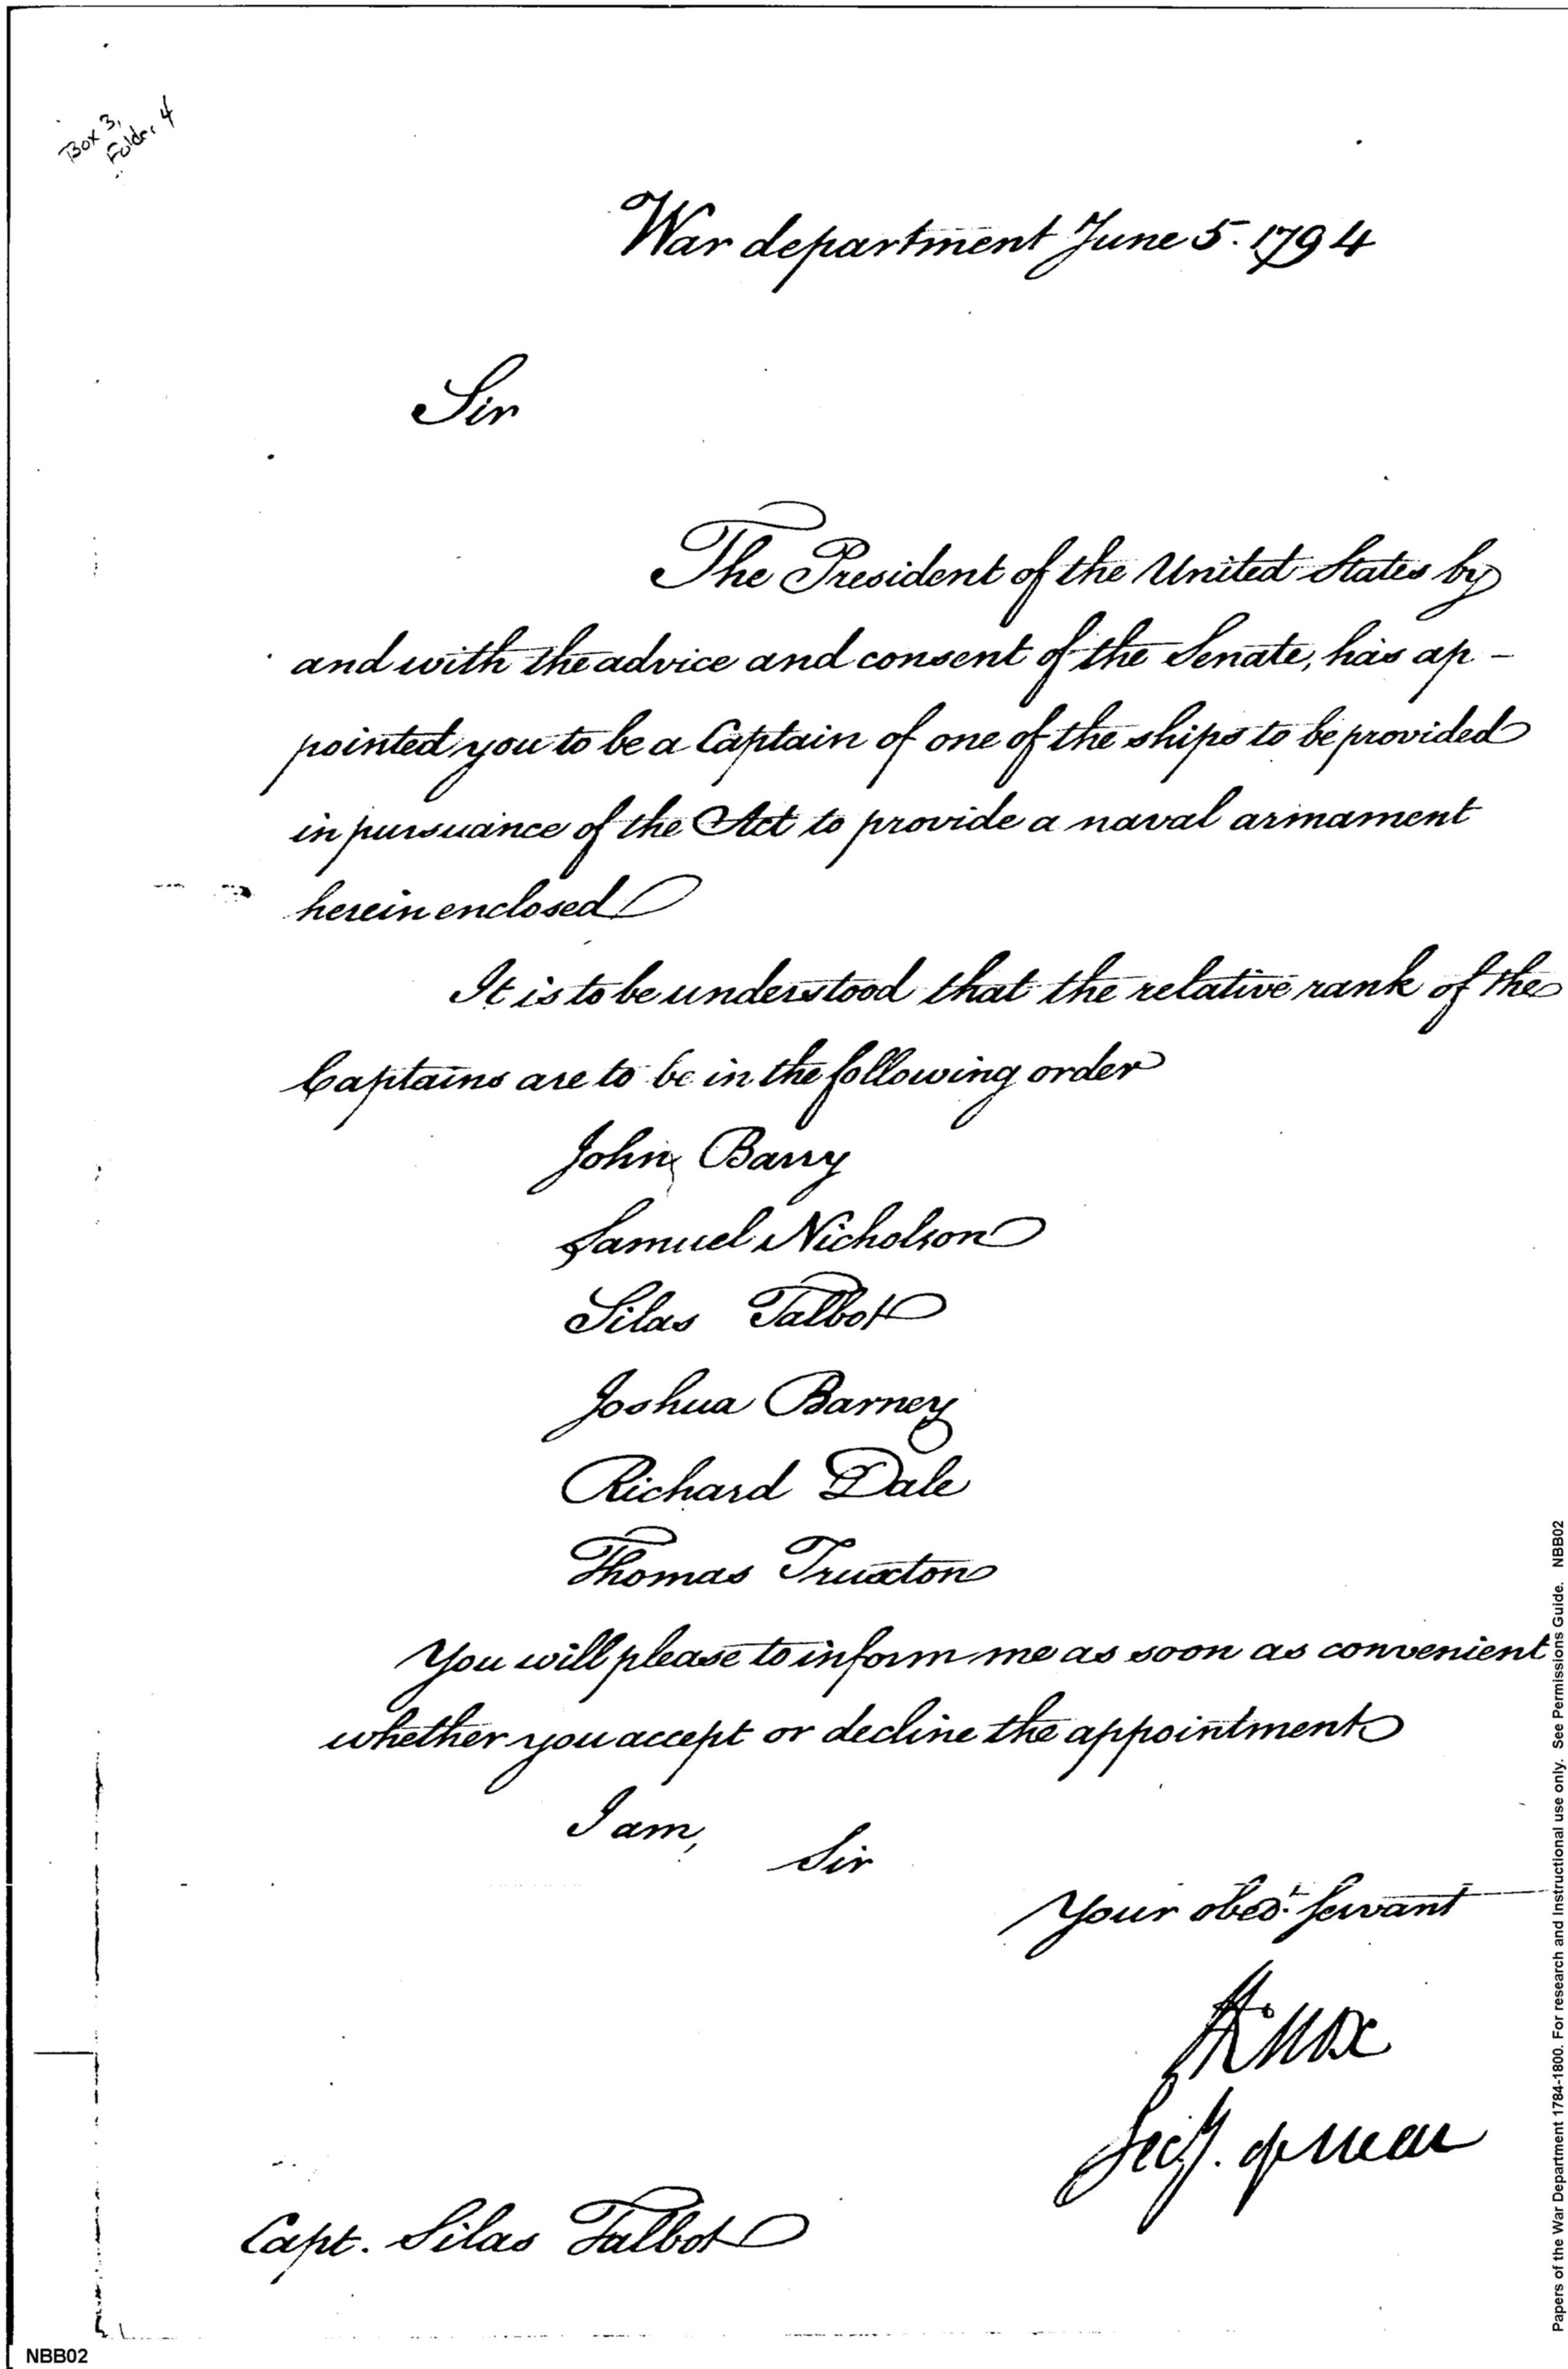 Box 3,
Folder 4
War department June 5. 1794
Sir
The President of the United States by
and with the advice and consent of the Senate, has ap -
pointed you to be a Captain of one of the ships to be provided
in pursuance of the Act to provide a naval armament
herein enclosed
It is to be understood that the relative rank of the
Captains are to be in the following order
John Barry
Samuel Nicholson
Silas Talbot
Joshua Barney
Richard Dale
Thomas Truxton
You will please to inform me as soon as convenient
whether you accept or decline the appointment
I am,
Sir
Your obedt. Servant
HKnox
Secy. of War
Capt. Silas Talbot
NBB02
Papers of the War Department 1784-1800. For research and Instructional use only. See Permissions Guide. NBB02